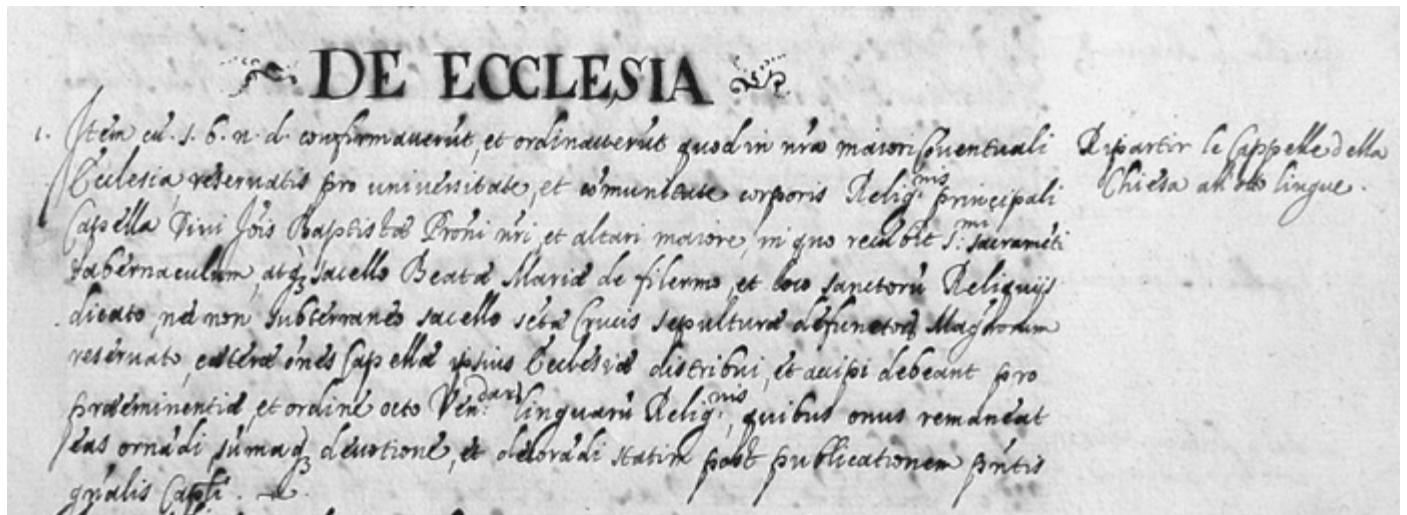 DE ECCLESIA
1. Itẽm cũ. S. b. n. d. confirmaverũt, et ordinaverũt quod in nr̃a maiori Cõventuali
Ecclesia, reservatis pro universitate, et cõmunitate corporis Relig.nis principali
Capella Divi Jõis Baptistæ Prõni nr̃i, et altari maiore, in quo recubet S.mi sacramẽti
tabernaculum, atq3 sacello Beatæ Mariæ de filermo, et loco sanctorũ Reliquijs
dicato, nec non subterraneo sacello sctæ Crucis sepulturæ defunctorũ Magrorum
reservato, cæteræ õnes Capellæ ipsius Ecclesiæ distribui, et accipi debeant pro
præeminentiæ, et ordine octo Ven.darũ linguarũ Relig.nis, quibus onus remaneat
eas ornãdi, sũmaq3 devotione, et decorãdi statim post publicationem pñtis
gñalis Capli.
Ripartir le Cappelle della
Chiesa all'otto lingue.